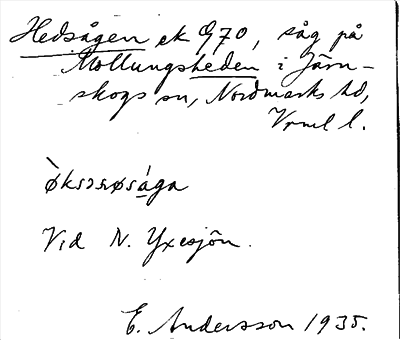 Hedsågen ek 970, såg på
Mollungsheden i Järn-
skogs sn, Nordmarks hd,
Vrml l.
Vid N. Yxesjön.
E. Andersson 1935.